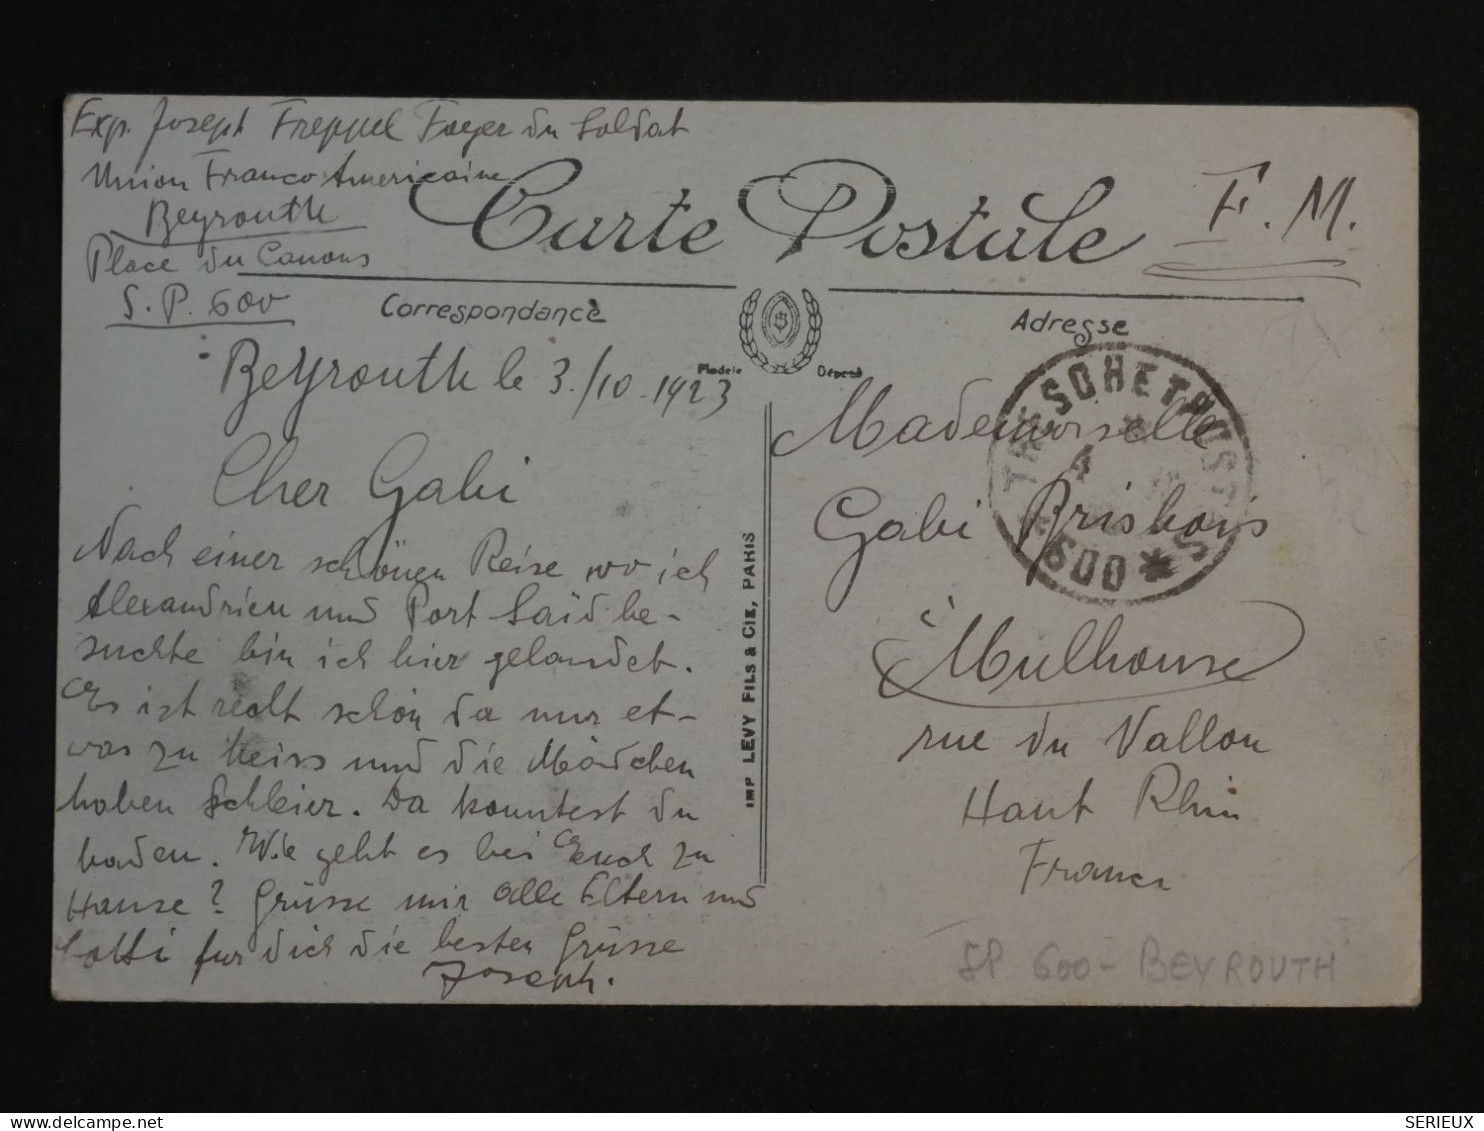 Exp. Joseph Freppel Foyer du Soldat
Union Franco-Américaine
Beyrouth
Place du Canons
S.P. 600
Carte Postale
F.M.
Correspondance
Adresse
Modèle Déposé
Beyrouth le 3./10.1923
Cher Gabi
Nach einer schönen Reise wo ich
Alexandrien und Port Saïd be-
suchte bin ich hier gelandet.
Es ist recht schön da nur et-
was zu heiss und die Mädchen
haben Schleier. Da konntest du
baden. Wie geht es bei Euch zu
Hause? Grüsse mir alle Eltern und
für dich die besten Grüsse
Joseph.
IMP LEVY FILS & CIE, PARIS
Mademoiselle
Gabi Brisbois
à Mulhouse
rue du Vallon
Haut Rhin
France
TRESOR ET POSTES
* 600 *
4
SP 600 - BEYROUTH
delcampe.net
SERIEUX